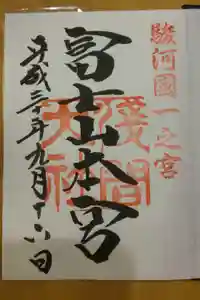 駿河國一之宮
富士山本宮
淺間大社
平成三十年九月十六日